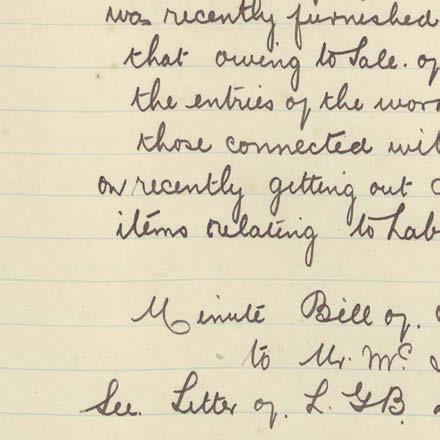 was recently furnished
that owing to Sale. of
the entries of the
those connected
on recently getting out
items relating to
Minute Bill of.
to Mr. Mc
See. Letter of. L. G B.